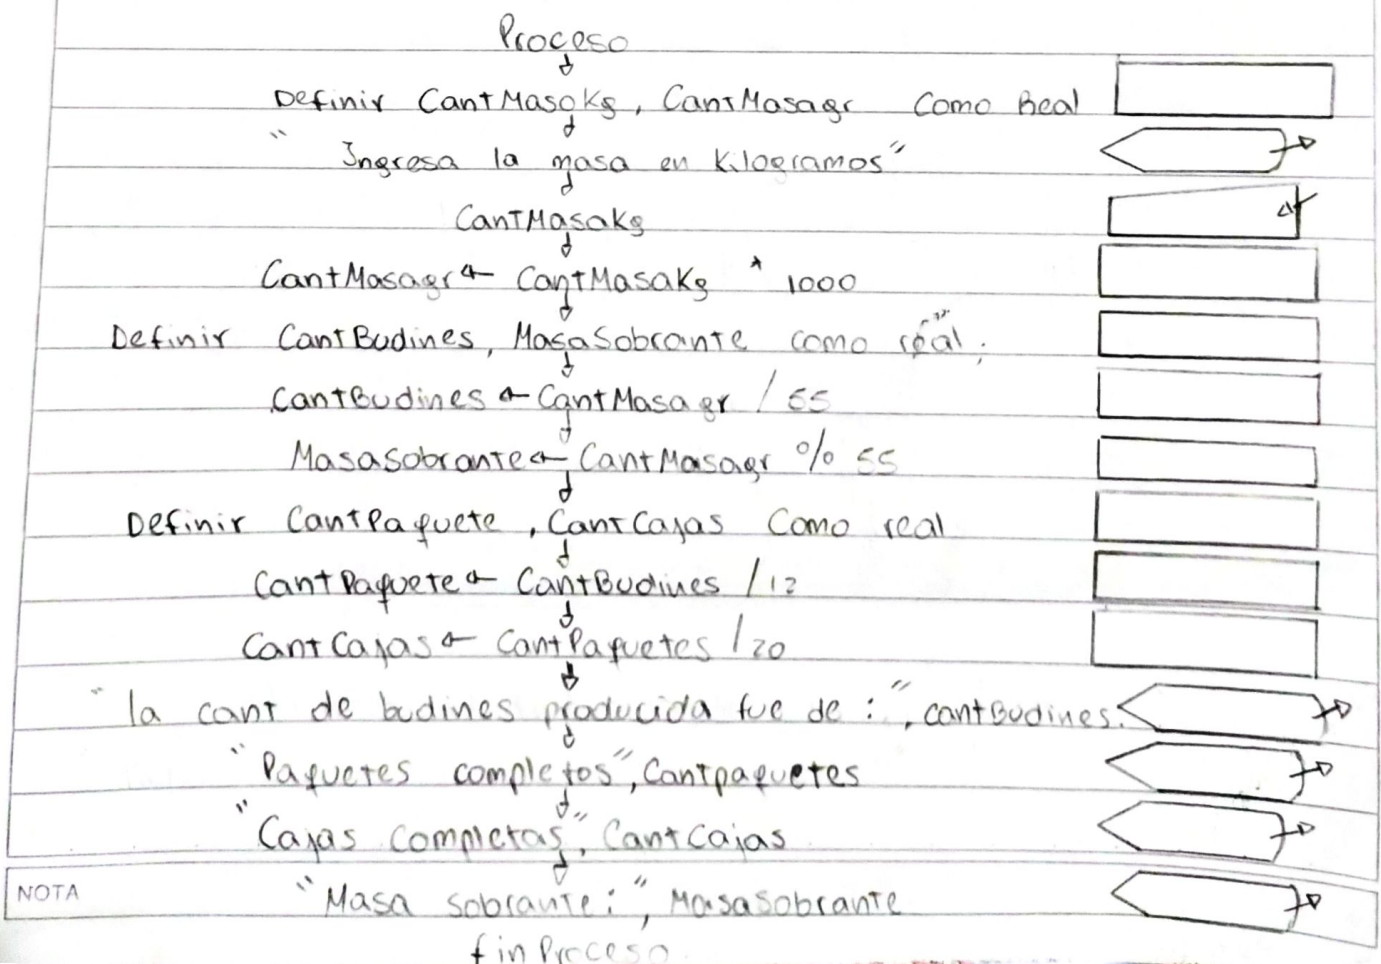 Proceso
Definir CantMasaKg, CantMasagr Como Real
"Ingresa la masa en Kilogramos"
CantMasaKg
CantMasagr ← CantMasaKg * 1000
Definir CantBudines, MasaSobrante como real;
CantBudines ← CantMasagr / 55
MasaSobrante ← CantMasagr % 55
Definir CantPaquete, CantCajas Como real
CantPaquete ← CantBudines /12
CantCajas ← CantPaquetes /20
"la cant de budines producida fue de :", cantBudines.
"Paquetes completos", Cantpaquetes
"Cajas Completas", CantCajas
NOTA
"Masa sobrante:", MasaSobrante
fin Proceso.